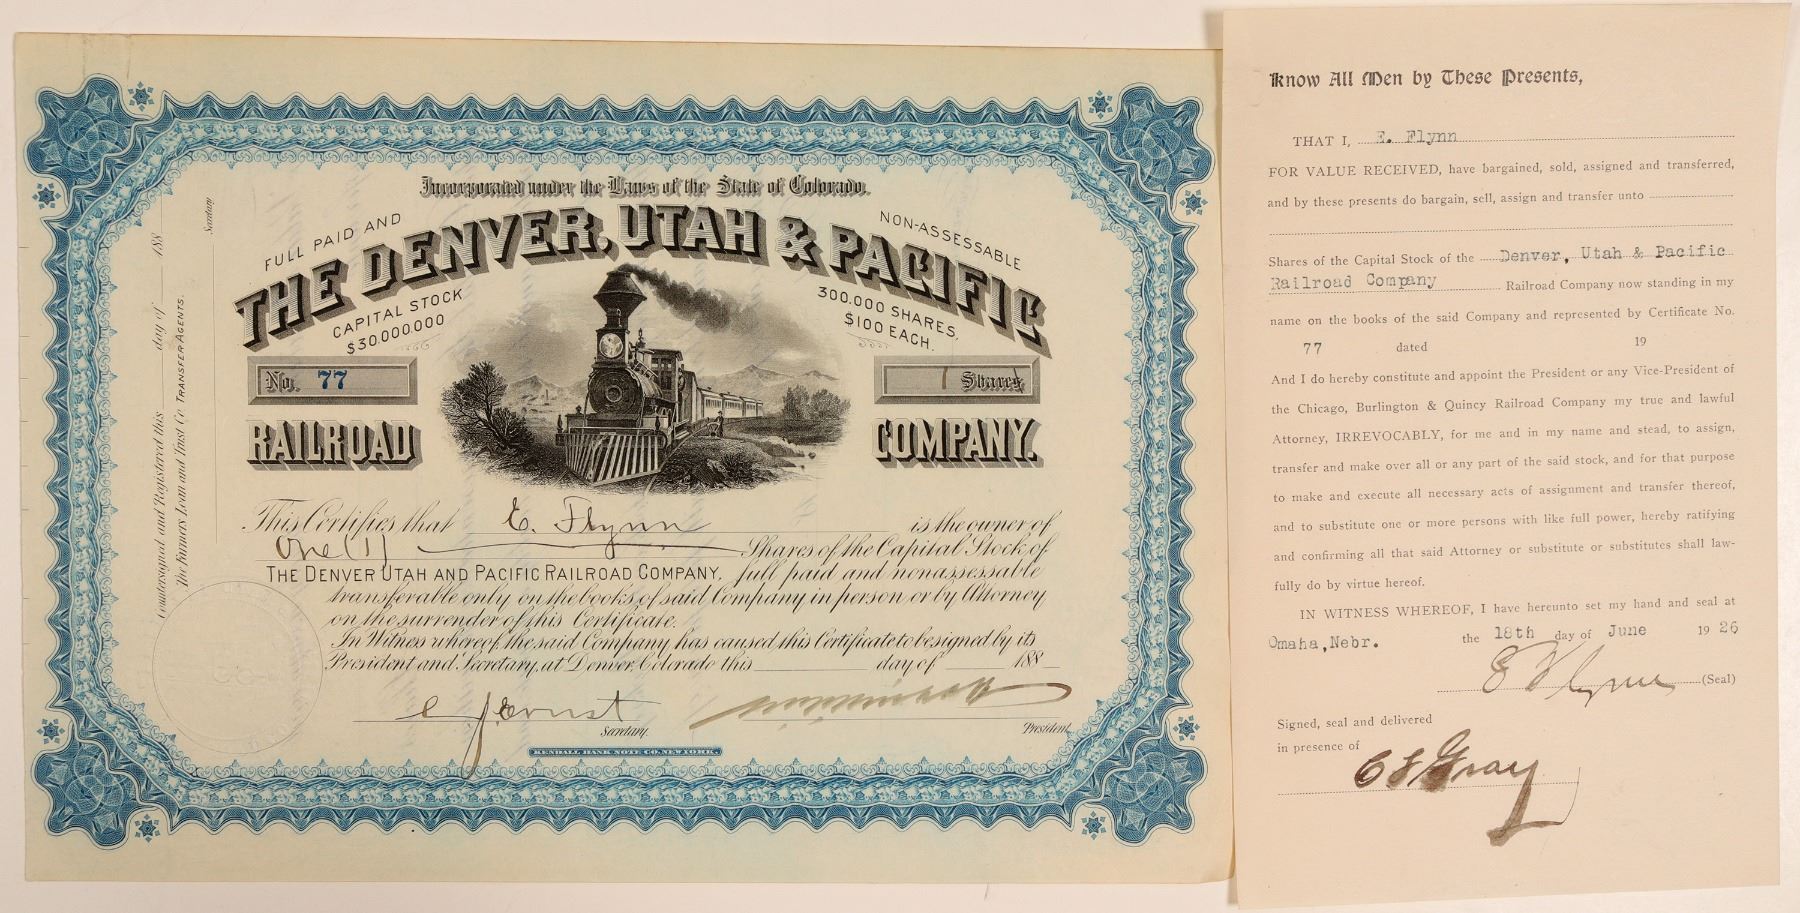 Incorporated under the Laws of the State of Colorado.
FULL PAID AND
NON-ASSESSABLE
THE DENVER, UTAH & PACIFIC
CAPITAL STOCK
$30.000.000
300.000 SHARES,
$100 EACH.
No. 77
1 Shares
RAILROAD
COMPANY.
This Certifies that E. Flynn is the owner of
One (1) Shares of the Capital Stock of
THE DENVER UTAH AND PACIFIC RAILROAD COMPANY, full paid and nonassessable
transferable only on the books of said Company in person or by Attorney
on the surrender of this Certificate.
In Witness whereof, the said Company has caused this Certificate to be signed by its
President and Secretary, at Denver, Colorado this day of 188
C J Ernst
Secretary.
President.
KENDALL BANK NOTE CO. NEW YORK.
Countersigned and Registered this day of 188
The Farmers Loan and Trust Co. TRANSFER AGENTS.
Secretary
Know All Men by These Presents,
THAT I, E. Flynn
FOR VALUE RECEIVED, have bargained, sold, assigned and transferred,
and by these presents do bargain, sell, assign and transfer unto
Shares of the Capital Stock of the Denver, Utah & Pacific
Railroad Company Railroad Company now standing in my
name on the books of the said Company and represented by Certificate No.
77 dated 19
And I do hereby constitute and appoint the President or any Vice-President of
the Chicago, Burlington & Quincy Railroad Company my true and lawful
Attorney, IRREVOCABLY, for me and in my name and stead, to assign,
transfer and make over all or any part of the said stock, and for that purpose
to make and execute all necessary acts of assignment and transfer thereof,
and to substitute one or more persons with like full power, hereby ratifying
and confirming all that said Attorney or substitute or substitutes shall law-
fully do by virtue hereof.
IN WITNESS WHEREOF, I have hereunto set my hand and seal at
Omaha, Nebr. the 18th day of June 1926
E Flynn (Seal)
Signed, seal and delivered
in presence of
C F Gray